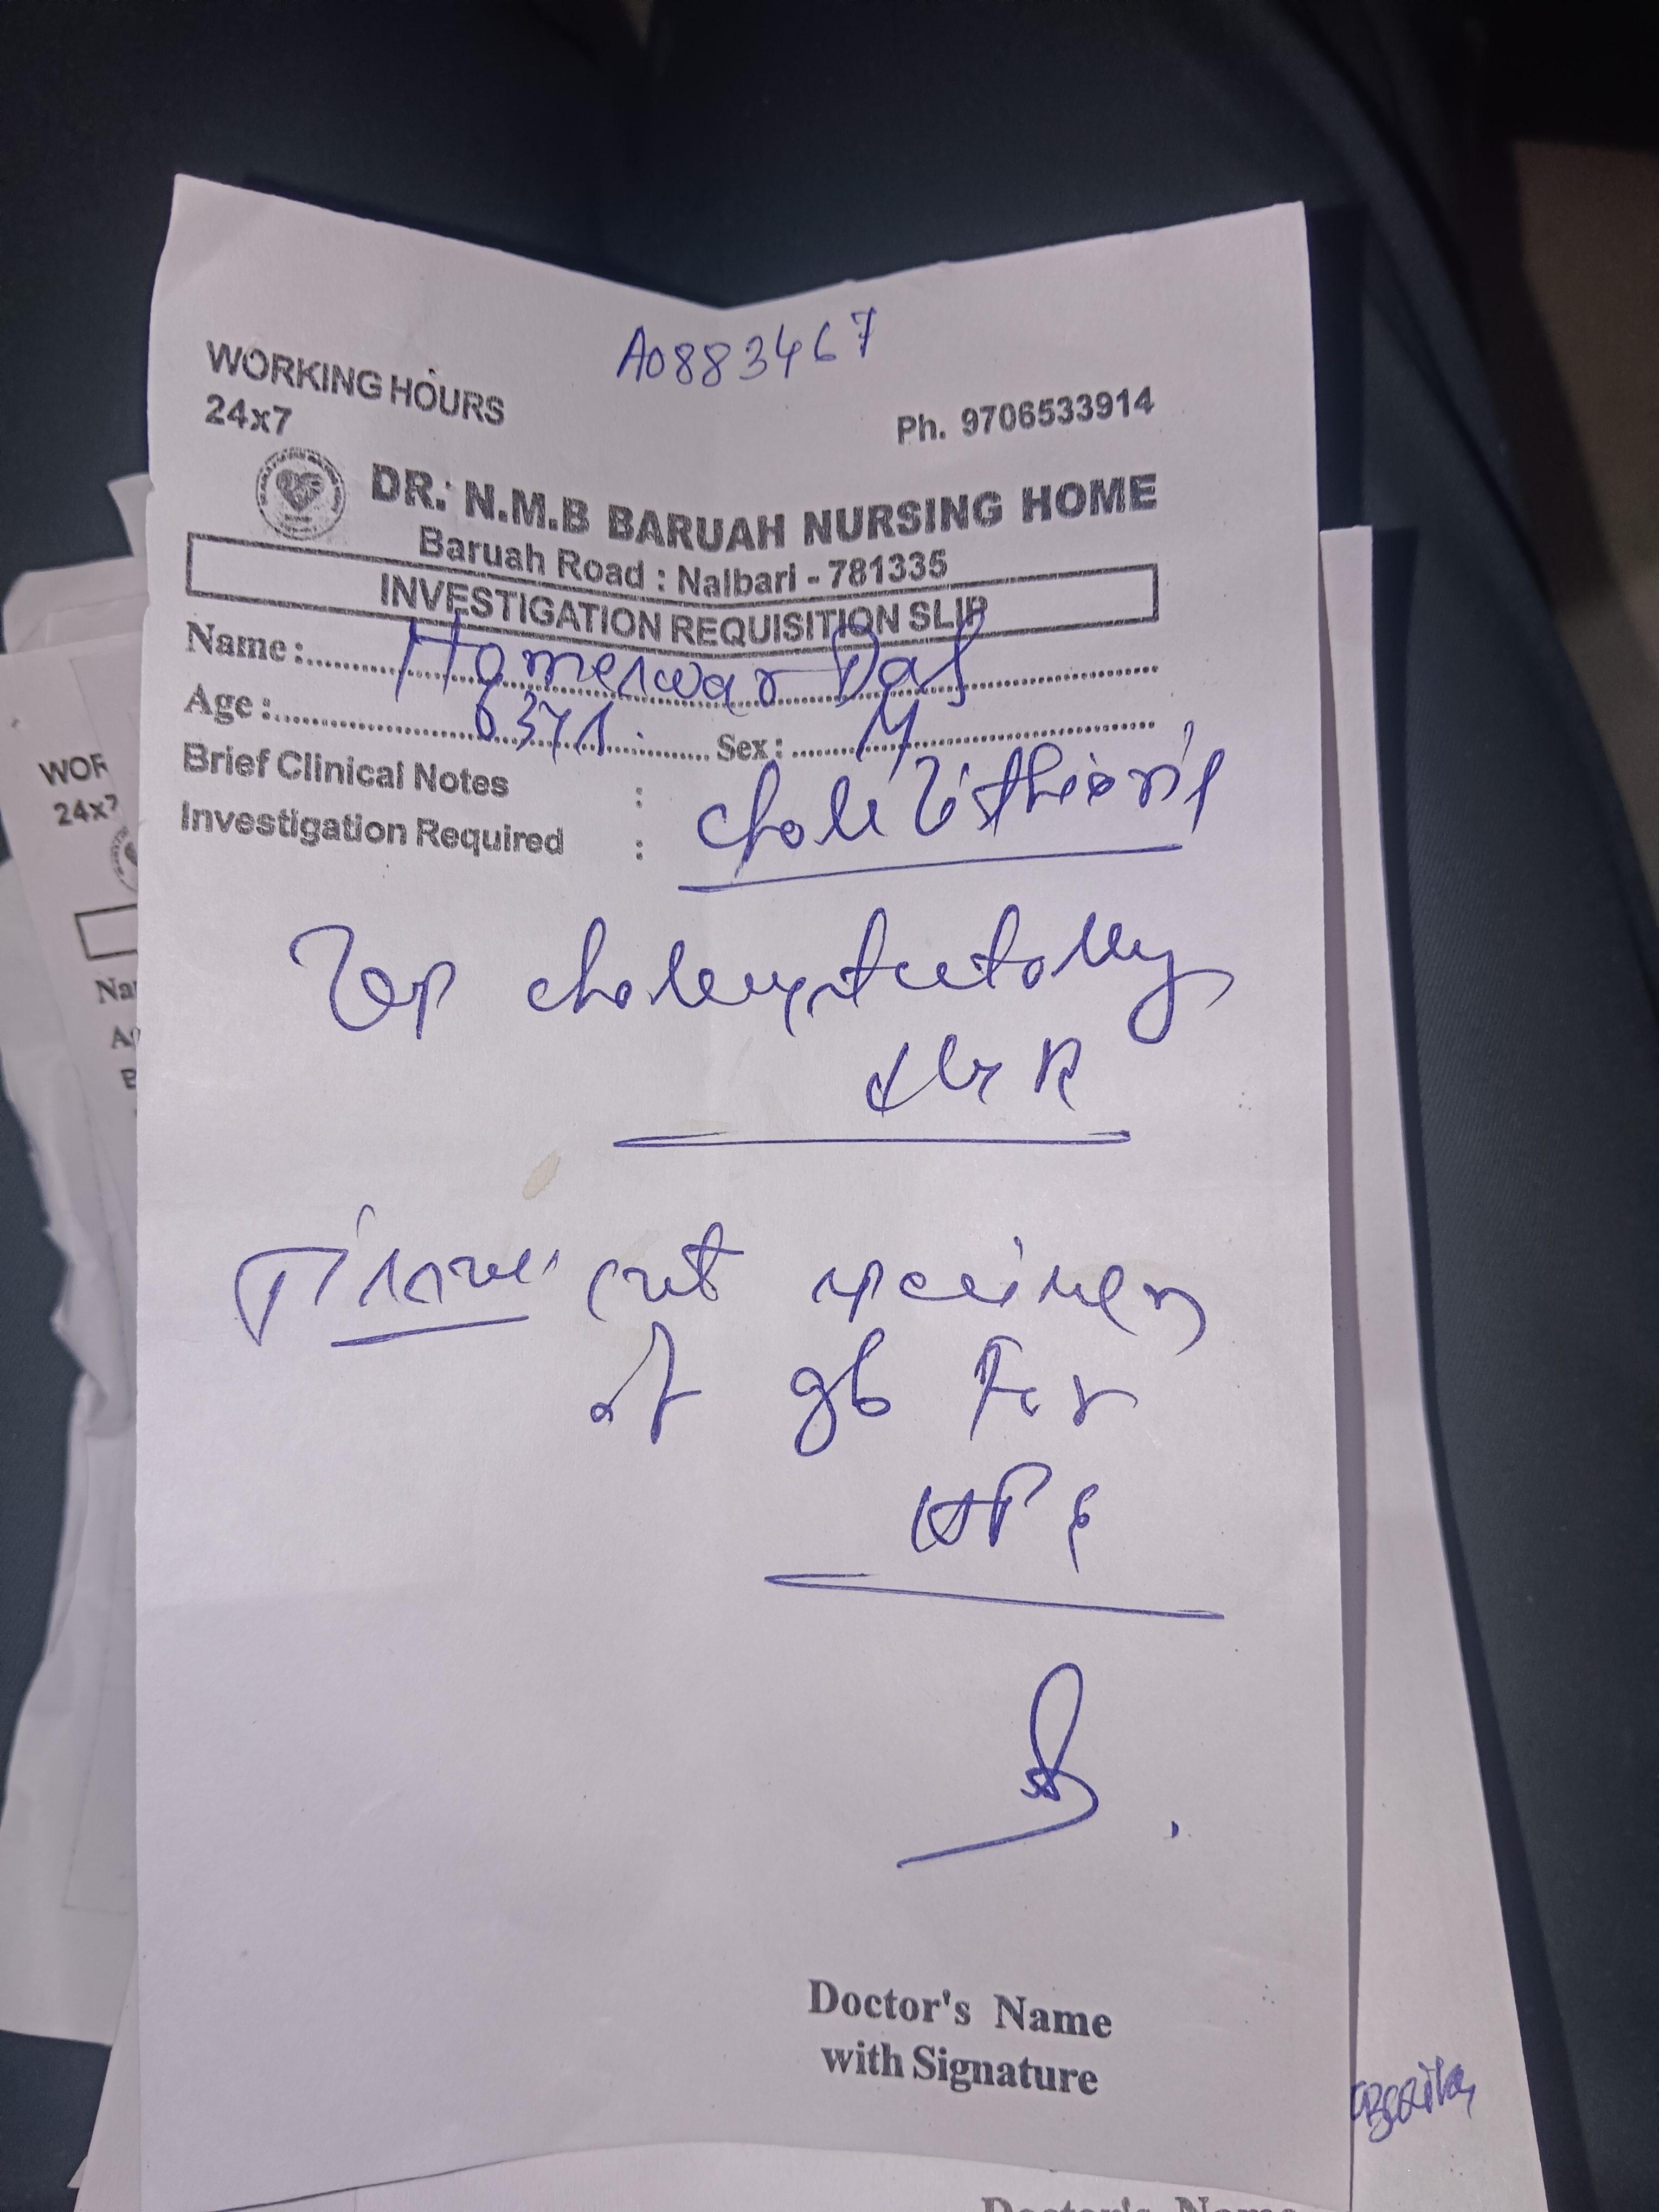 A0883467
WORKING HOURS
24x7
Ph. 9706533914
DR. N.M.B BARUAH NURSING HOME
Baruah Road : Nalbari - 781335
INVESTIGATION REQUISITION SLIP
Name : Homeswar Das
Age : 63 Sex : M
Brief Clinical Notes :
Investigation Required : Cholelithiasis
Lap cholecystectomy
Tissue cut specimen
of gb For
HPE
Doctor's Name
with Signature
WOR
24x7
Doctor's Name